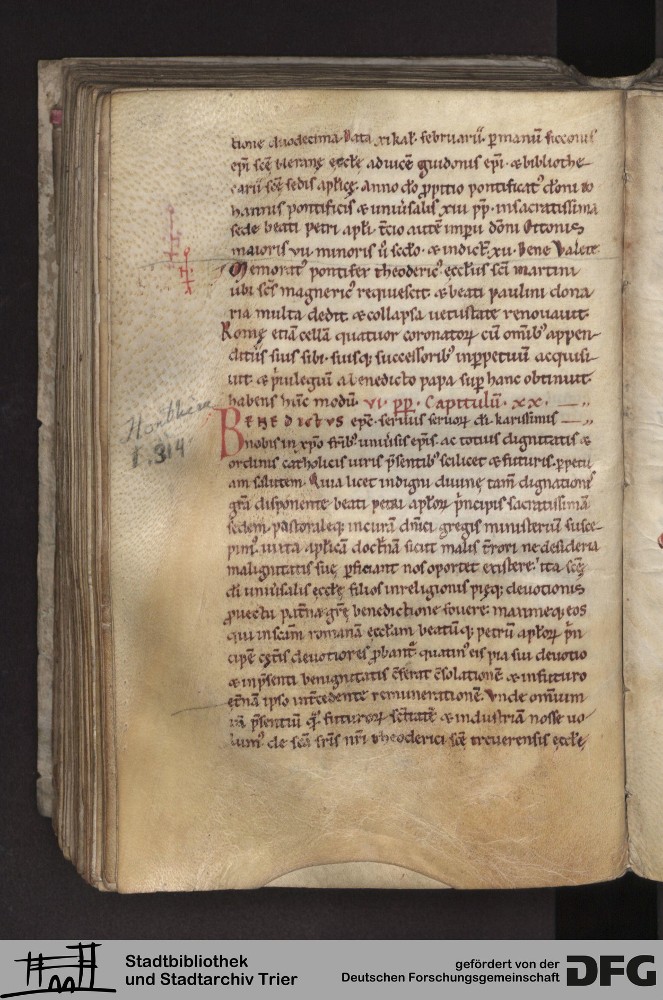 tione duodecima. Data xi kal. februarii. p manū sicconis
epi scē bleranę ęcclę ad uicē guidonis epi. & bibliothe
carii scē sedis aplicę. anno dō ppitio pontificat' dōni io
hannis pontificis & uniūsalis xiii pp. in sacratissima
sede beati petri apli. tcio autē impii dōni Ottonis
maioris vii minoris ū scdo. & indict. xii. Bene Valete.
Memorat' pontifex theoderic' ęcclēis scī martini
ubi scs magneric' requiescit. & beati paulini dona
ria multa dedit. & collapsa uetustate renouauit.
Romę etiā cellā quatuor coronatorꝝ cū omib' appen
ditiis suis sibi. suisq; successorib' inppetuū acquisi
uit. & puilegiū a benedicto papa sup hanc obtinuit.
habens hūc modū. vi. pp. Capitulū. xx.
BENEDICTVS epc. seruus seruorꝝ di. karissimis
nobis in xpo frib' uniūsis epis. ac totius dignitatis &
ordinis catholicis uiris psentib' scilicet & futuris. ppetu
am salutem. Quia licet indigni diuinę tam dignatione
gra disponente beati petri aplorꝝ pncipis sacratissimā
sedem pastoraleq; in curam dnici gregis ministeriū susce
pim'. iuxta aplicā doctnā sicut malis trori ne desideria
malignitatis suę pficiant nos oportet existere. ita scę
di uniūsalis ęcclę filios in religionis pięq; deuotionis
puectu patna grę benedictione fouere. maximeq; eos
qui in scam romanā ęcclam beatūq; petrū aplorꝝ pn
cipē cętis deuotiores pbant. quatin' eis pia sui deuotio
& in psenti benignitatis cferat csolationē & in futuro
etnā ipso intcedente remunerationē. Vnde omium
tā psentiū q̄ futurorꝝ scitatē & industriā nosse uo
lum' de scā fris nri theoderici scē treuerensis ęcclę
Hontheim
I. 314
Stadtbibliothek
und Stadtarchiv Trier
gefördert von der
Deutschen Forschungsgemeinschaft
DFG